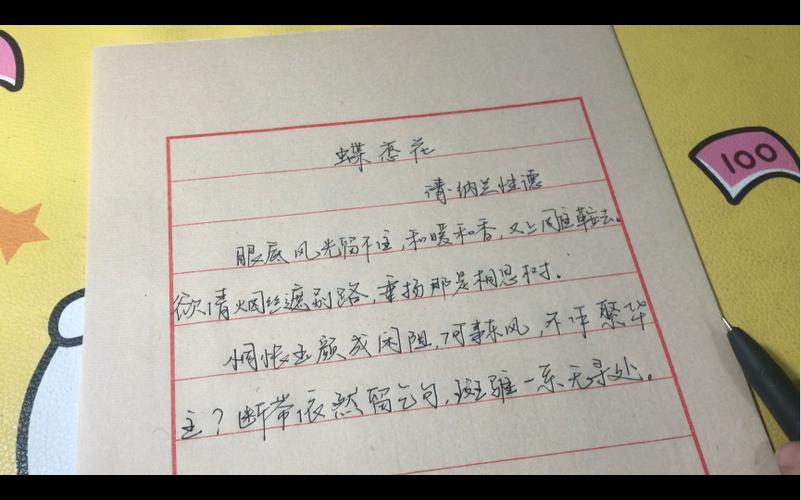 蝶恋花
清·纳兰性德
眼底风光留不住,和暖和香,又上雕鞍去。
欲倩烟丝遮别路,垂杨那是相思树。
惆怅玉颜成闲阻,何事东风,不作繁华
主?断带依然留乞句,斑骓一系无寻处。
100